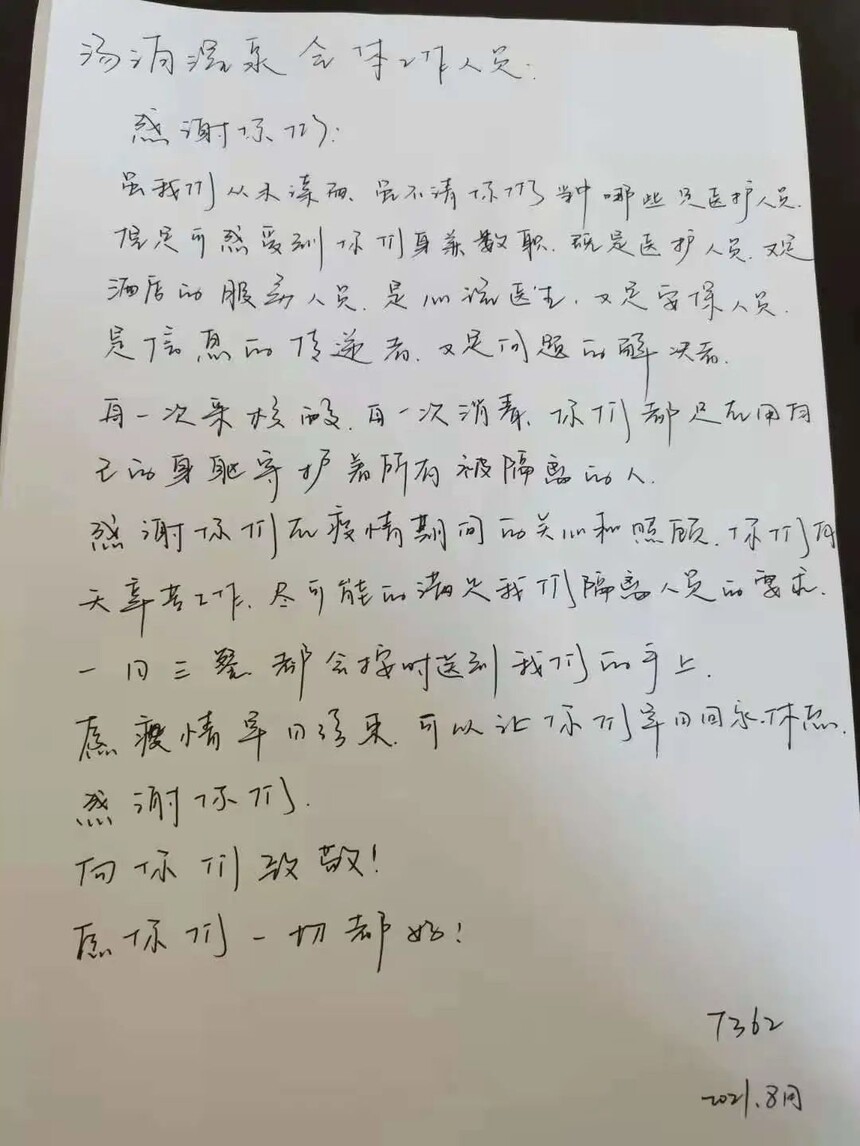 汤泃温泉全体工作人员:
感谢你们:
虽我们从未谋面、虽不清你们当中哪些是医护人员.
但是可感受到你们身兼数职、既是医护人员、又是
酒店的服务人员、是心流医生、又是安保人员.
是信息的传递者、又是问题的解决者.
每一次采核酸、每一次消毒、你们都是在用自
己的身躯守护着所有被隔离的人.
感谢你们在疫情期间的关心和照顾、你们每
天辛苦工作、尽可能的满足我们隔离人员的要求.
一日三餐都会按时送到我们的手上.
愿疫情早日结束、可以让你们早日回家休息.
感谢你们.
向你们致敬!
愿你们一切都好!
7362
2021.8月